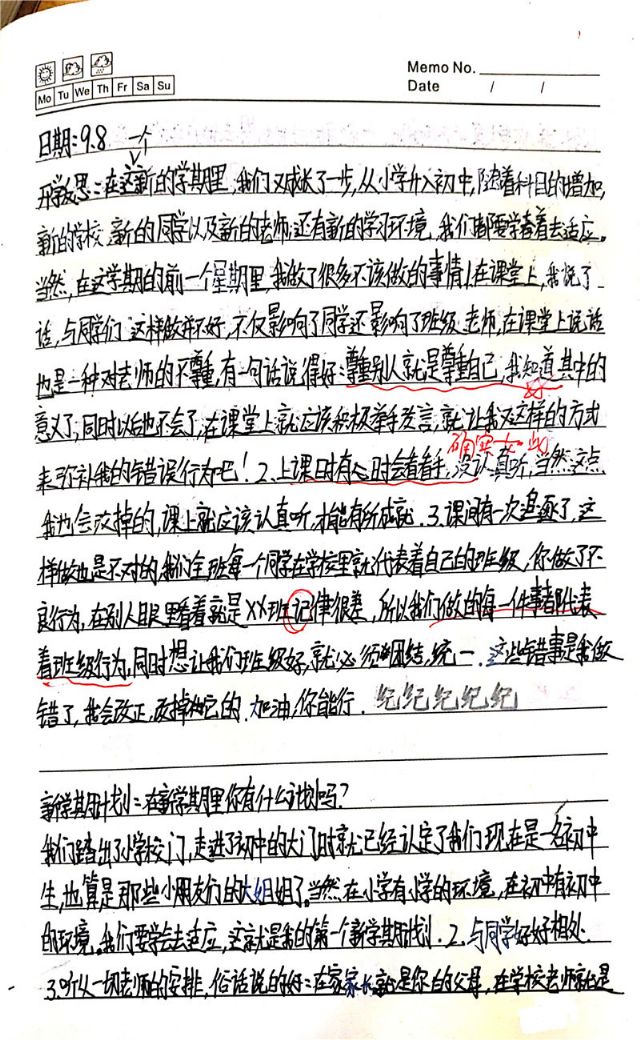 Memo No.
Mo Tu We Th Fr Sa Su
Date / /
日期:9.8 一个
开学反思:在这新的学期里,我们又成长了一步,从小学升入初中,随着科目的增加,
新的学校,新的同学以及新的老师,还有新的学习环境,我们都要学着去适应。
当然,在这学期的前一个星期里,我做了很多不该做的事情1.在课堂上,我说了
话,与同学们 这样做并不好,不仅影响了同学还影响了班级,老师,在课堂上说话
也是一种对老师的不尊重,有一句话说得好:尊重别人就是尊重自己,我知道其中的
好
意义了,同时以后也不会了,在课堂上就应该积极举手发言,就让我以这样的方式
确实如此
来弥补我的错误行为吧!2.上课时有时会看看手,没认真听,当然这点
我也会改掉的,课上就应该认真听,才能有所成就.3.课间有一次追逐了,这
样做也是不对的,我们全班每一个同学在学校里就代表着自己的班级,你做了不
良行为,在别人眼里看着就是XX班记律很差,所以我们做的每一件事都代表
着班级行为,同时想让我们班级好,就必须团结,统一.这些错事是我做
错了,我会改正,改掉它的.加油,你能行.纪纪纪纪纪
新学期计划:在新学期里你有什么计划吗?
我们踏出了小学校门,走进了初中的大门时就已经认定了我们现在是一名初中
生,也算是那些小朋友们的大姐姐了。当然在小学有小学的环境,在初中有初中
的环境。我们要学会去适应,这就是我的第一个新学期计划.2.与同学好好相处.
3.听从一切老师的安排,俗话说的好:在家家长就是你的父母,在学校老师就是